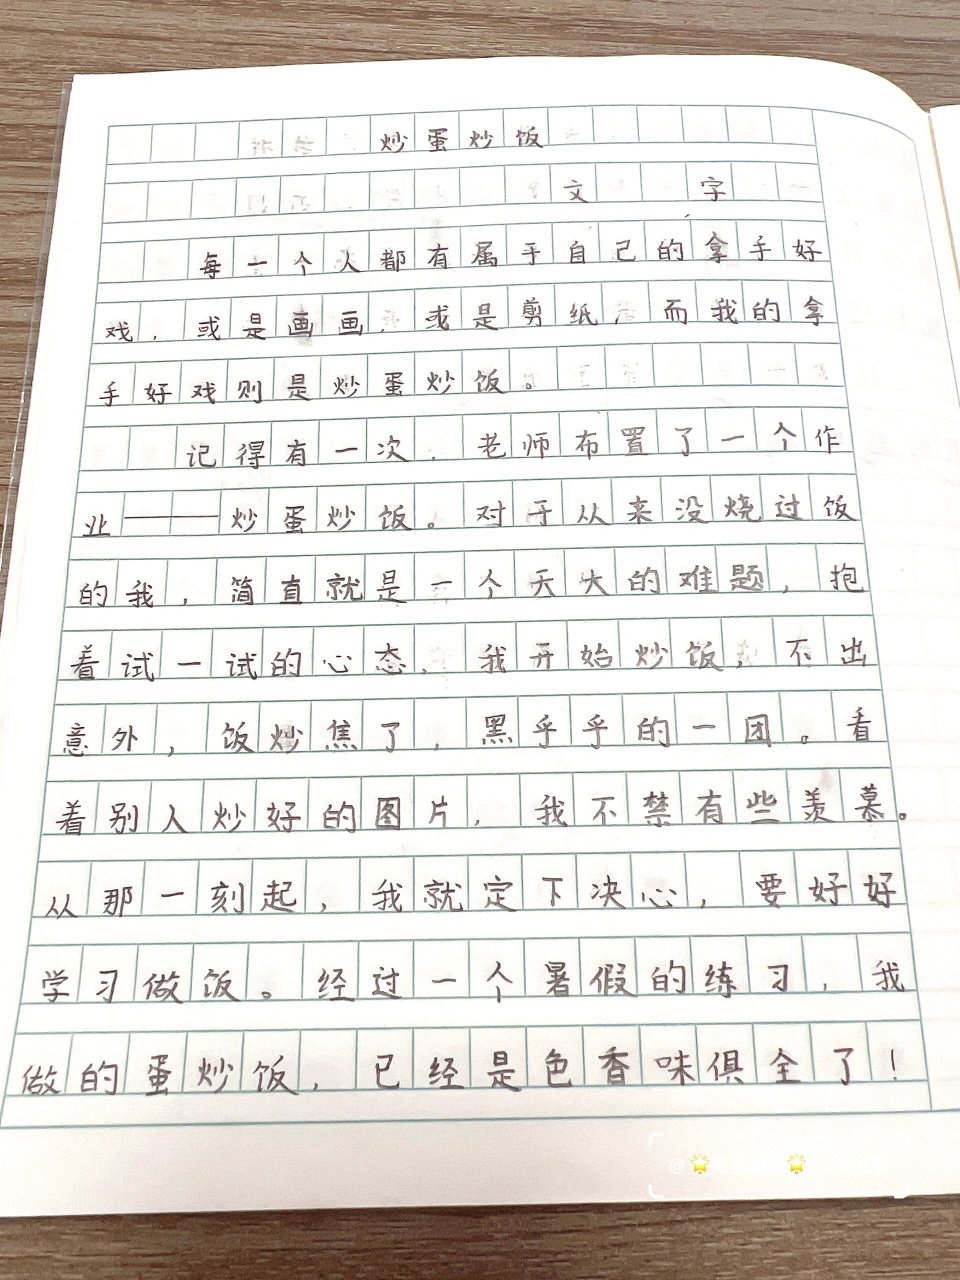 炒蛋炒饭
文 字
每一个人都有属于自己的拿手好
戏，或是画画，或是剪纸，而我的拿
手好戏则是炒蛋炒饭。
记得有一次，老师布置了一个作
业——炒蛋炒饭。对于从来没烧过饭
的我，简直就是一个天大的难题，抱
着试一试的心态，我开始炒饭，不出
意外，饭炒焦了，黑乎乎的一团。看
着别人炒好的图片，我不禁有些羡慕。
从那一刻起，我就定下决心，要好好
学习做饭。经过一个暑假的练习，我
做的蛋炒饭，已经是色香味俱全了！